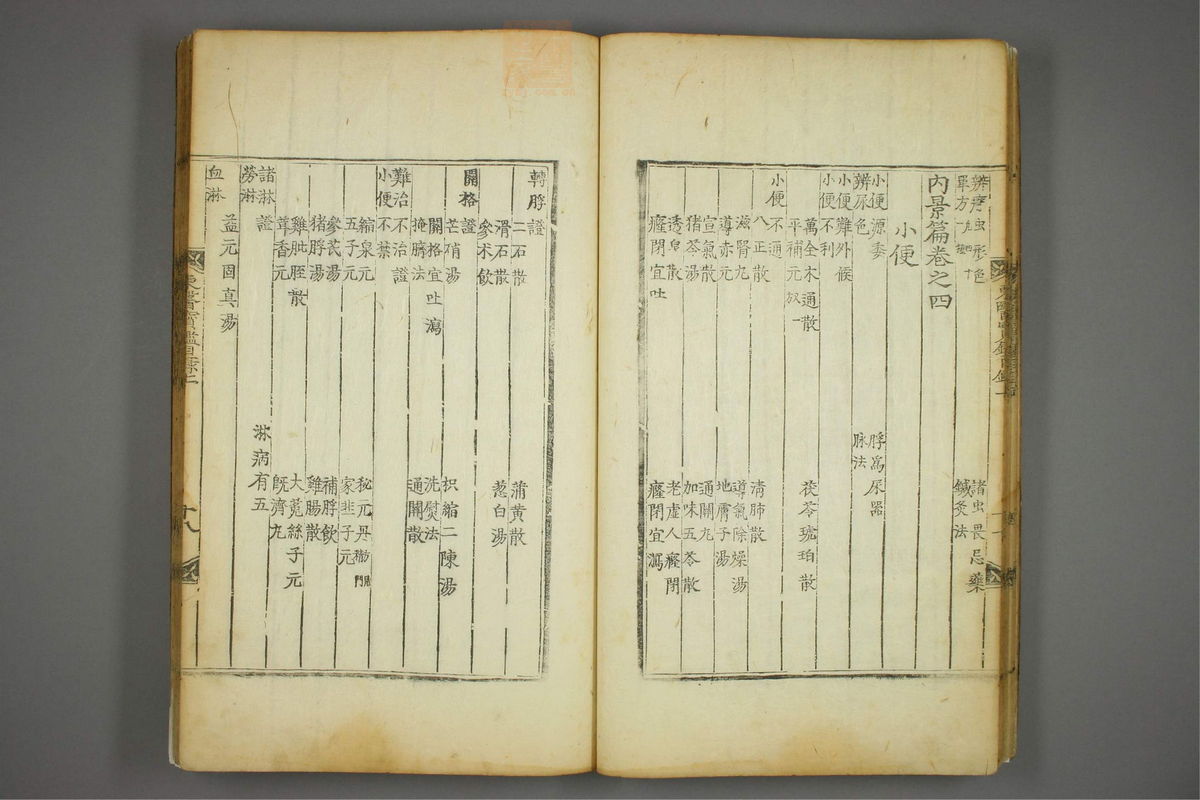 辨虫形色 諸虫畏忌藥
單方 鍼灸法
內景篇卷之四
小便
小便源委 脬爲尿器
辨尿色 脉法
小便難外候
小便不利
萬全木通散 茯苓琥珀散
平補元
小便不通
八正散 淸肺散
滋腎丸 導氣除燥湯
導赤元 地膚子湯
宣氣散 通關丸
猪苓湯 加味五苓散
透泉散 老虛人癃閉
癃閉宜吐 癃閉宜瀉
轉脬證
二石散 蒲黃散
滑石散 葱白湯
參朮飮
關格證
芒硝湯 枳縮二陳湯
關格宜吐瀉 洗熨法
掩臍法 通關散
難治不治證
小便不禁
縮泉元 秘元丹
五子元 家韭子元
參芪湯 補脬飮
猪脬湯 雞腸散
雞肶胵散 大菟絲子元
茸香元 旣濟丸
諸淋證 淋病有五
勞淋
益元固眞湯
血淋
東醫寶鑑目錄二
十八